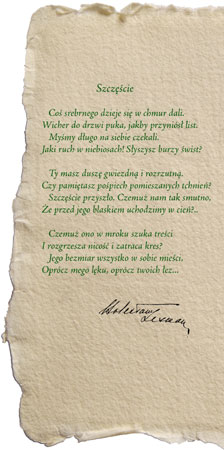 Szczęście
Coś srebrnego dzieje się w chmur dali.
Wicher do drzwi puka, jakby przyniósł list.
Myśmy długo na siebie czekali.
Jaki ruch w niebiosach! Słyszysz burzy świst?
Ty masz duszę gwiezdną i rozrzutną.
Czy pamiętasz pośpiech pomieszanych tchnień?
Szczęście przyszło. Czemuż nam tak smutno,
Że przed jego blaskiem uchodzimy w cień?..
Czemuż ono w mroku szuka treści
I rozgrzesza nicość i zatraca kres?
Jego bezmiar wszystko w sobie mieści,
Oprócz mego lęku, oprócz twoich łez...
Bolesław
Leśmian